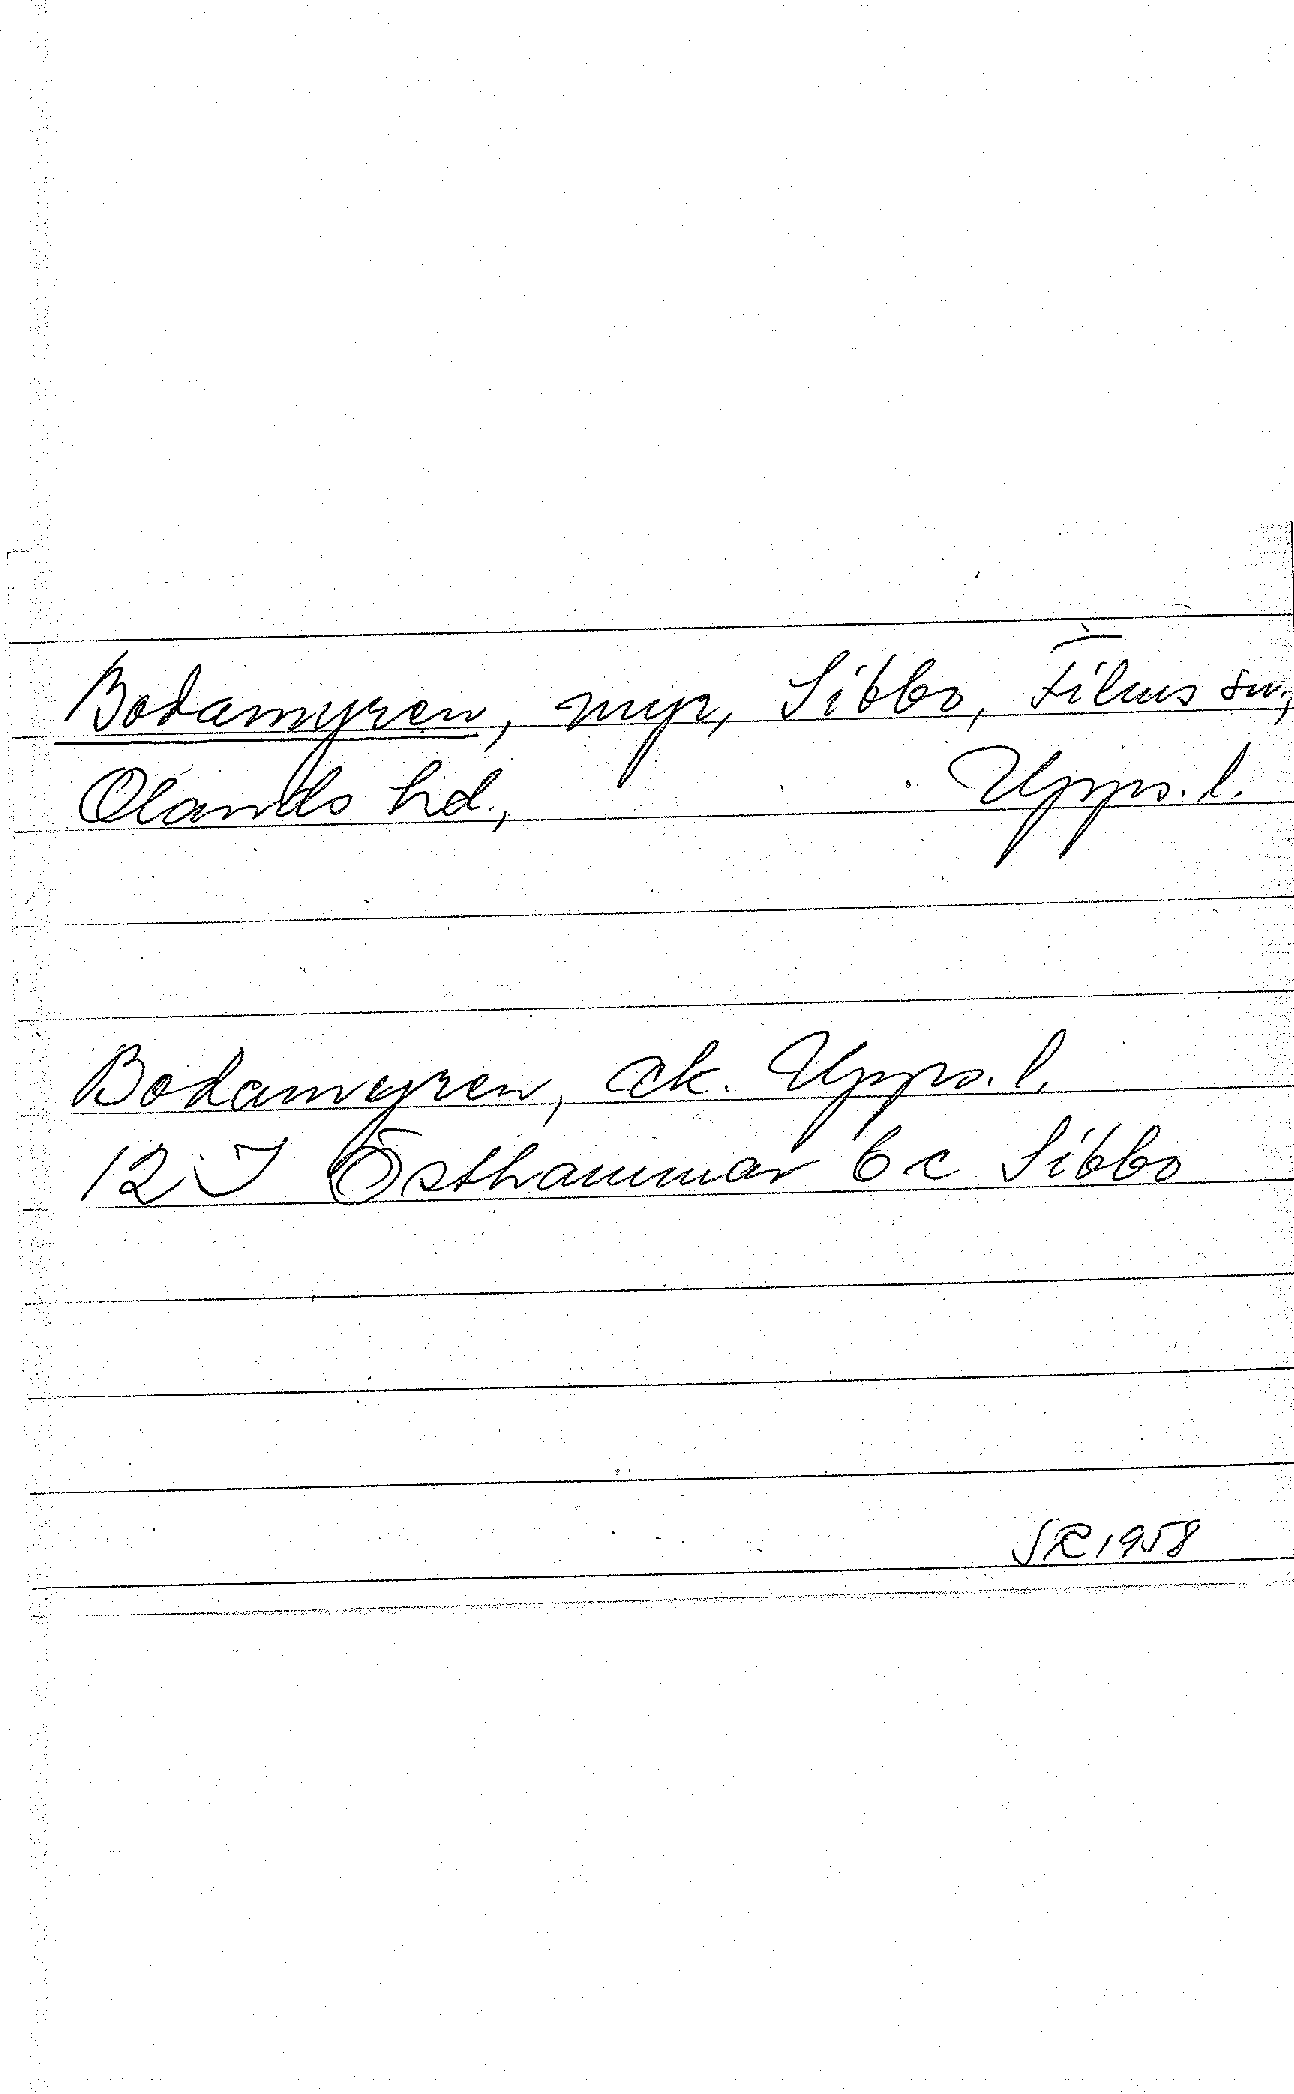 Bodamyren, myr, Sibbo, Films sn,
Olands hd., Upps. l.
Bodamyren, ek. Upps. l.
12 I Östhammar 6 c Sibbo
SR 1958